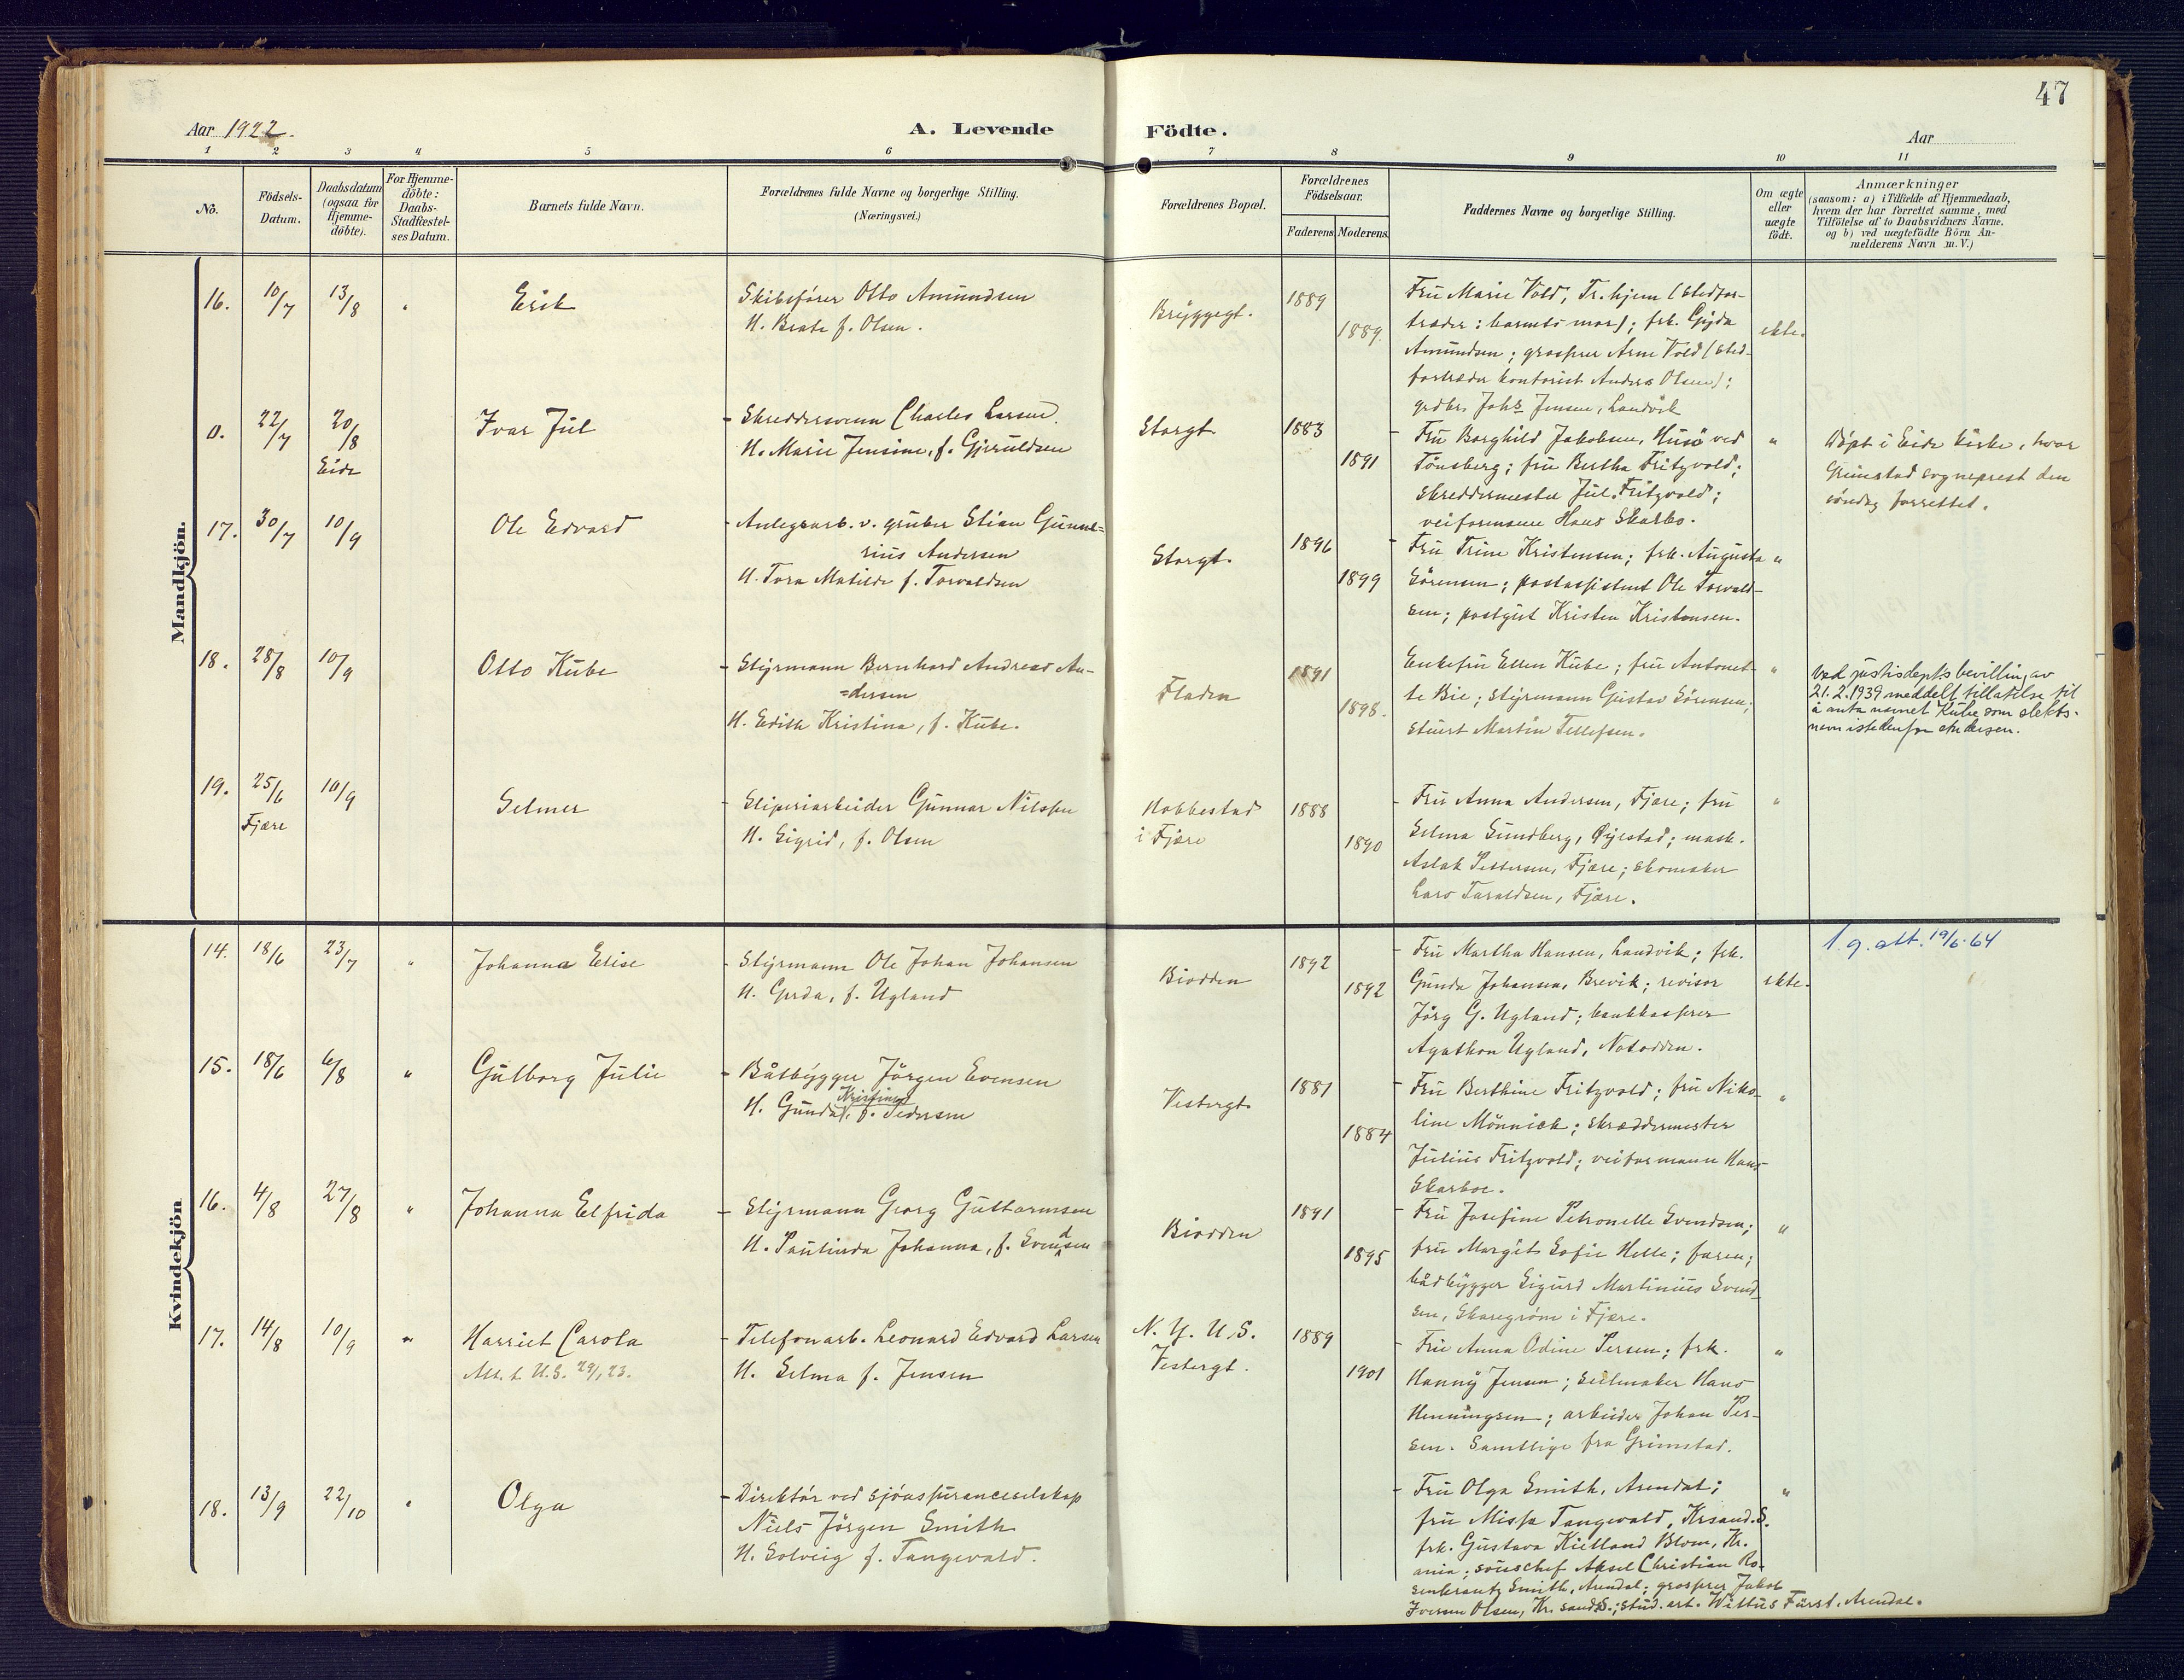 47
Aar 1922.
A. Levende Födte.
Aar
1 2 3 4 5 6 7 8 9 10 11
No.
Födsels-
Datum.
Daabsdatum
(ogsaa for
Hjemme-
döbte).
For Hjemme-
döbte:
Daabs-
Stadfæstel-
ses Datum.
Barnets fulde Navn.
Forældrenes fulde Navne og borgerlige Stilling.
(Næringsvei.)
Forældrenes Bopæl.
Forældrenes
Födselsaar.
Faderens. Moderens.
Faddernes Navne og borgerlige Stilling.
Om ægte
eller
uægte
födt.
Anmærkninger
(saasom: a) i Tilfælde af Hjemmedaab,
hvem der har forrettet samme, med
Tilföielse af to Daabsvidners Navne,
og b) ved uægtefödte Börn An-
melderens Navn m. V.)
Mandkjön.
16. 10/7 13/8 " Erik
Skibsfører Otto Amundsen
H. Beate f. Olsen.
Bryggegt.
1889
1889.
Fru Marie Vold, Tr.hjem (stedfor-
træder: barnets mor); frk. Gyda
Amundsen; grosserer Arne Vold (sted-
fortræder kontorist Anders Olsen);
grdbr. Johs Jensen, Landvik
ekte.
0. 22/7 20/8
Eide
Ivar Jul
- Skreddersvenn Charles Larsen.
H. Marie Jensine, f. Gjeruldsen
Storgt.
1883
1891
- Fru Borghild Jakobsen, Husø ved
Tønsberg; fru Bertha Fritzvold;
skreddermester Jul. Fritzvold;
veiformann Hans Skarbo.
"
Døpt i Eide kirke, hvor
Grimstad sogneprest den
søndag forrettet.
17. 30/7 10/9 Ole Edvard
- Anlegsarb. v. gruber Stian Gunne=
rius Andersen
H. Tora Matilde f. Torvaldsen
Storgt.
1896
1899
- Fru Trine Kristensen; frk. Augusta
Sørensen; postassistent Ole Torvald-
sen; postgut Kristen Kristensen.
"
18. 28/8 10/9 Otto Kube
- Styrmann Bernhard Andreas An-
=dersen
H. Edith Kristina, f. Kube.
Fladen
1891
1898.
Enkefru Ellen Kube; fru Antonet-
te Bie; Styrmann Gustav Sørensen;
stuert Martin Tellefsen.
"
Ved justisdepts bevilling av
21.2.1939 meddelt tillatelse til
å anta navnet Kube som slekts-
navn istedenfor Andersen.
19. 25/6 10/9
Fjære
Selmer
- Sliperiarbeider Gunnar Nilssen
H. Sigrid, f. Olsen
Nobbestad
i Fjære
1888
1890
- Fru Anna Andersen, Fjære; fru
Selma Sundberg, Øyestad; mask.
Aslak Pettersen, Fjære; skomaker
Lars Taraldsen, Fjære.
"
Kvindekjön
14. 18/6 23/7 " Johanna Elise
- Styrmann Ole Johan Johansen
H. Gerda, f. Ugland
Biodden
1892
1892
- Fru Martha Hansen, Landvik; frk.
Gunda Johansen, Brevik; revisor
Jørg G. Ugland; bankkasserer
Agathon Ugland, Notodden.
ekte.
1. g. att. 19/6-64
15. 18/6 6/8 " Gulborg Julie
- Båtbygger Jørgen Evensen
Kristine
H. Gunda, f. Pedersen
Vestergt.
1881
1884
- Fru Berthine Fritzvold; fru Niko-
line Mønnick; skræddermester
Julius Fritzvold; veiformann Hans
Skarboe.
"
16. 4/8 27/8 " Johanna Elfrida
- Styrmann Georg Guttormsen
H. Paulinda Johanna, f. Svendsen
Biodden
1891
1895
- Fru Josefine Petronelle Svendsen;
fru Margit Sofie Helle; faren;
båtbygger Sigurd Martinius Svend-
sen, Skaregrøm i Fjære.
"
17. 14/8 10/9 " Harriet Carola
Att. t. U.S. 29/1 23.
- Telefonarb. Leonard Edvard Larsen
H. Selma f. Jensen
N. Y. U. S.
Vestergt.
1889
1901
- Fru Anna Odine Persen; frk.
Hanny Jensen; seilmaker Hans
Henningsen; arbeider Johan Per-
sen. Samtlige fra Grimstad.
"
18. 13/9 22/10 " Olga
- Direktør ved sjøassuranceselskap
Niels Jørgen Smith
H. Solveig f. Tangevald.
- Fru Olga Smith, Arendal;
fru Missa Tangevald, Krsand.S.
frk. Gustava Kielland Blom, Kr.
ania; souschef Aksel Christian Ro-
senkrantz Smith, Arendal; grosserer Jakob
Iversen Olsen, Kr.sand S.; stud. art. Wittus Fürst, Arendal.
"